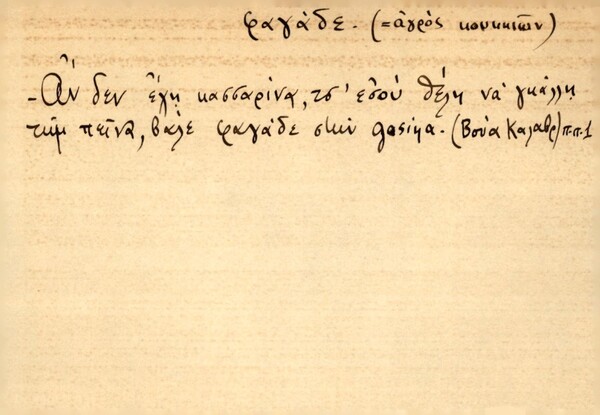 φαγάδε. (=ἀγρός κουκκιῶν)
- Ἂν δεν ἔχῃ κασσαρίνα, τσ' ἐσού θέλῃ νά γκάλλῃ
τὴμ πεῖνα, βάλε φαγάδε στὴν
(Βούα Καλαβρ) π.π.1